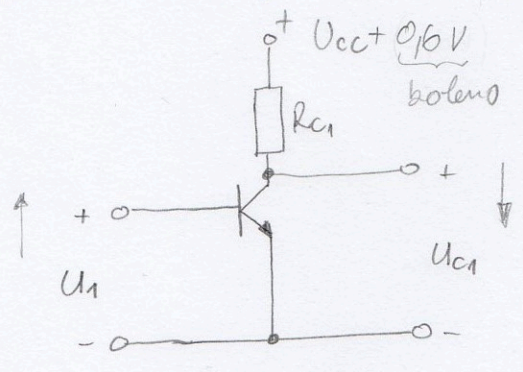 + Ucc + 0,6V
boleno
RC1
+
+
U1
UC1
-
-